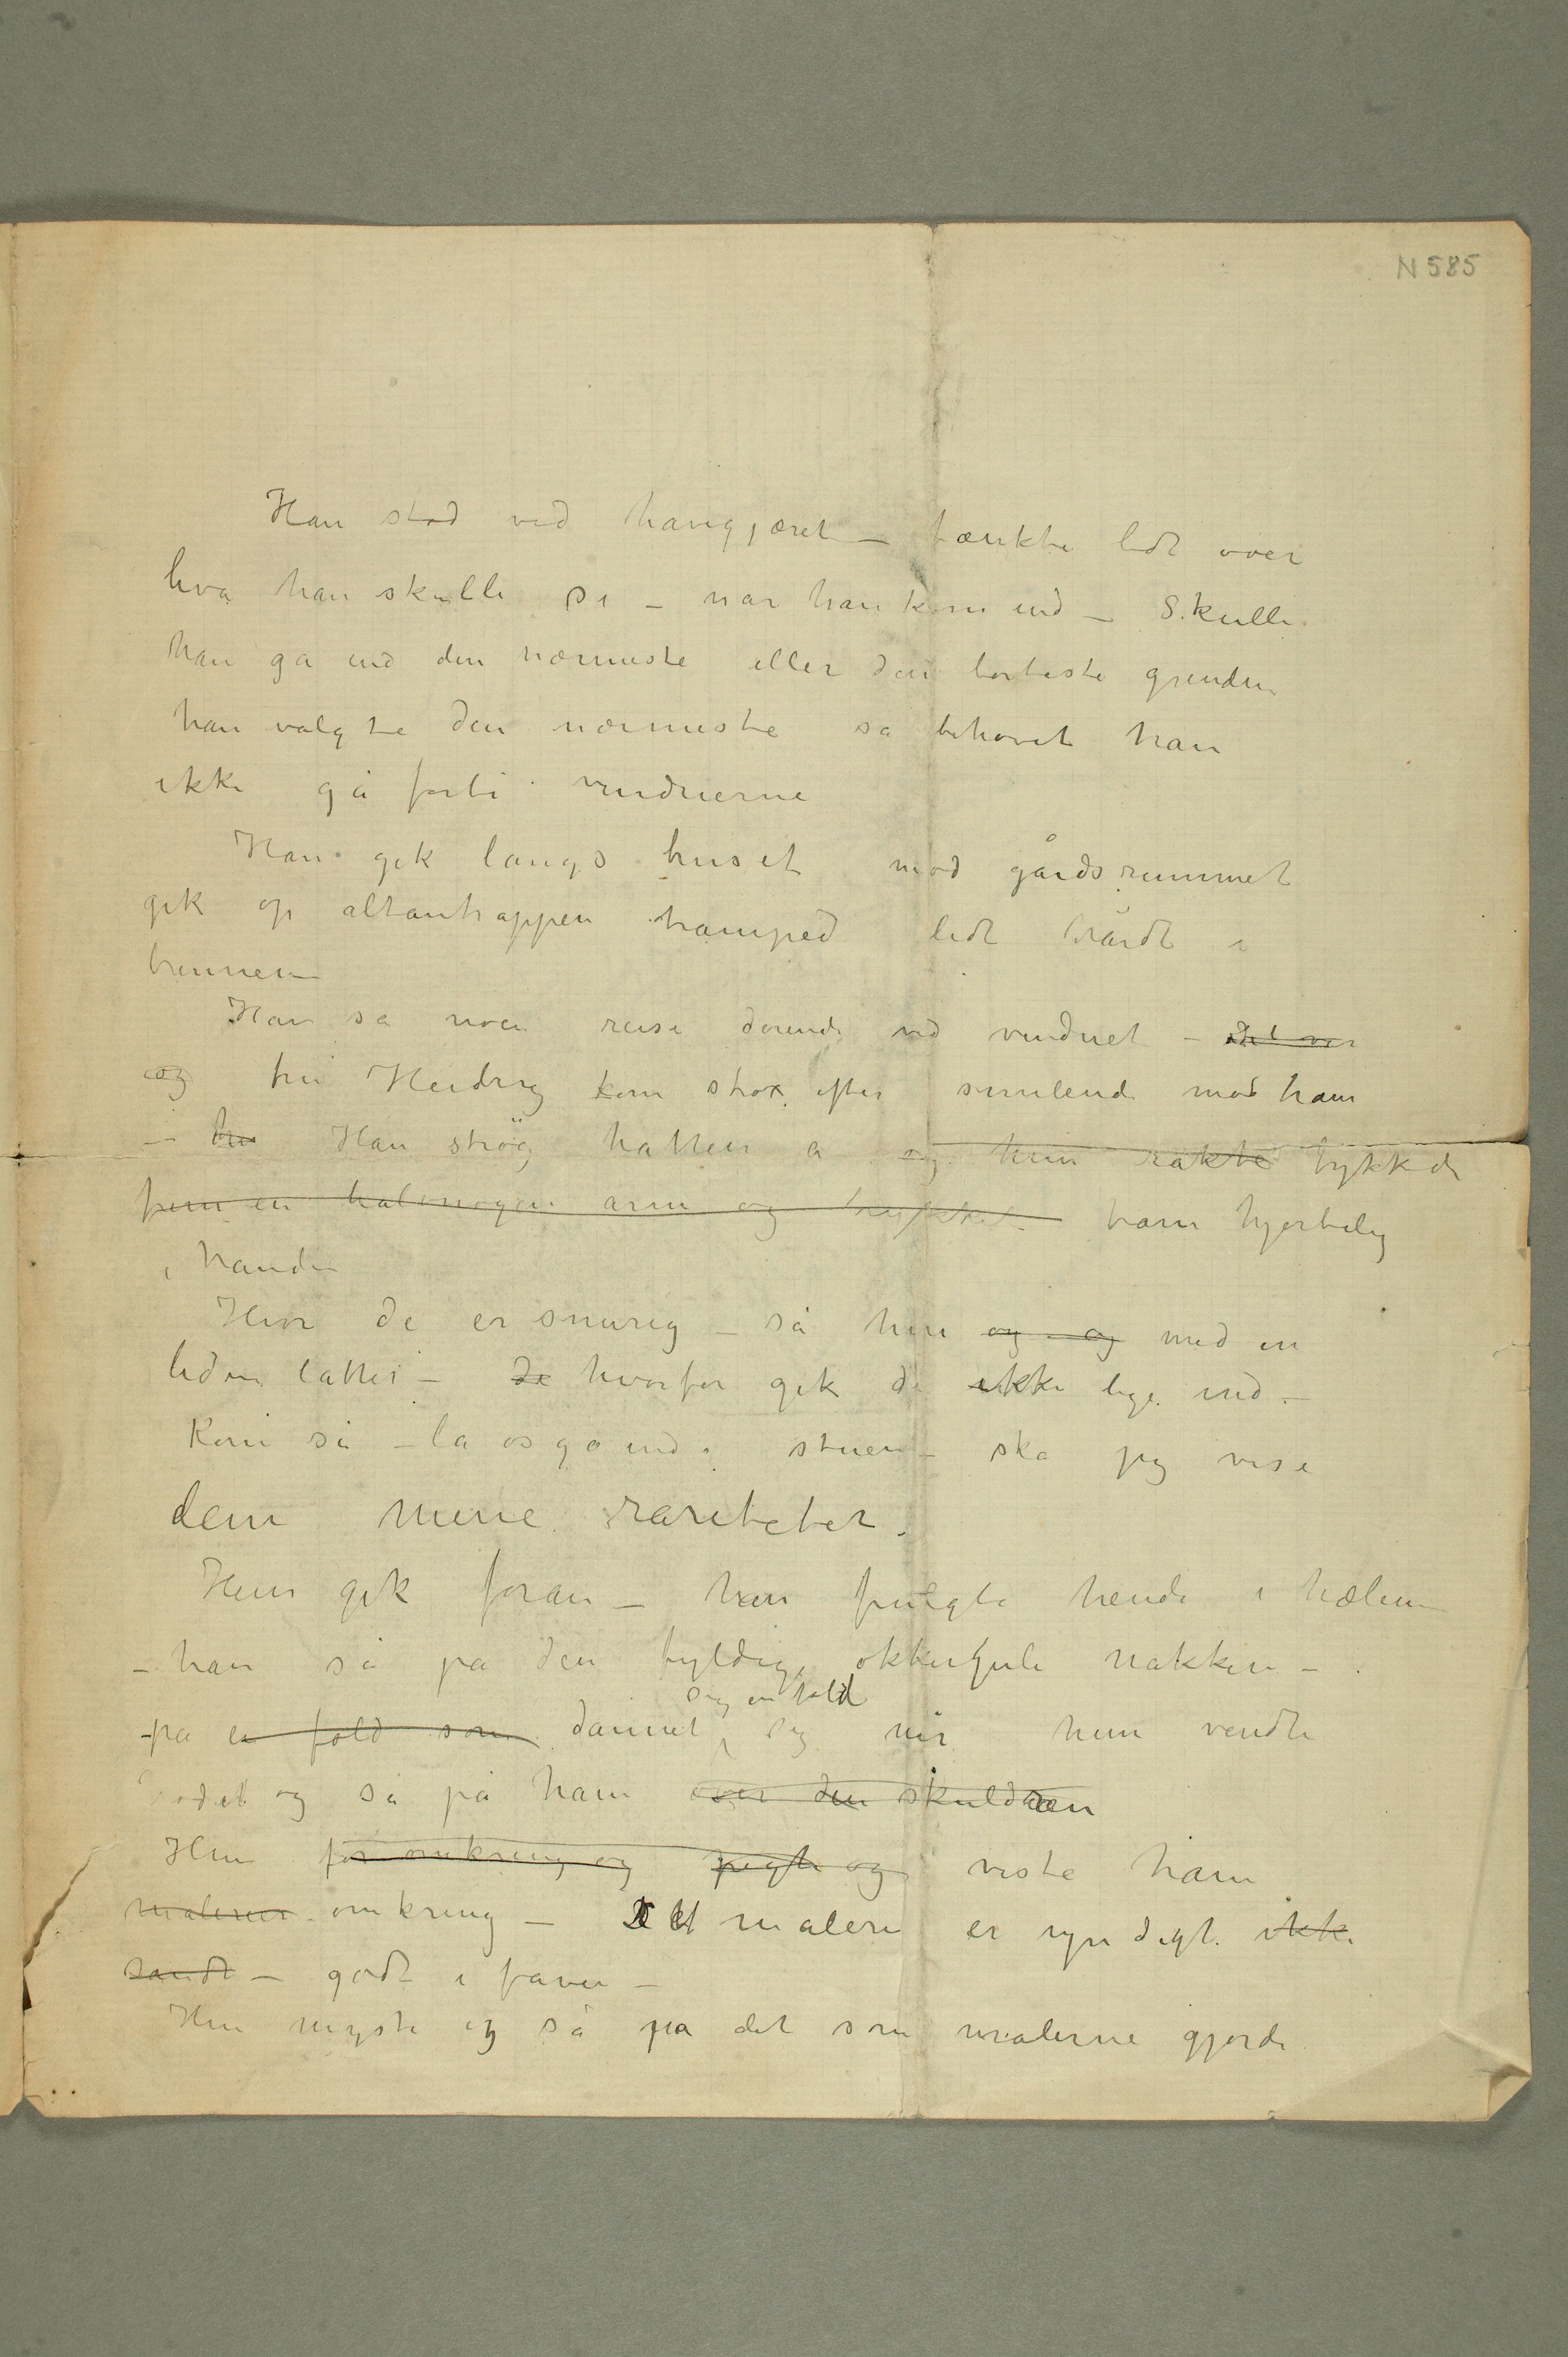 N 585
Han stod ved havegjæret – tænkte lidt over
hva han skulle si – når han kom ind – Skulle
han gå ind den nærmeste eller den borteste grinden
han valgte den nærmeste så behøvet han
ikke gå forbi vinduerne
Han gik langs huset mod gårdsrummet
gik op altantrappen tramped lidt hårdt i
trinnene
Han så noen reise derinde ved vinduet – det var
og fru Heidrig kom strax efter smilende mod ham
– hu Han strøg hatten a og hun rakte trykkede
frem en halvnøgen arm og trykket ham hjertelig
i hånden
Hvor de er snurrig – sa hun og og med en
liden latter – De hvorfor gik de ikke lige ind –
Kom så – la os gå ind i stuen – ska jeg vise
dem mine rariteter.
Hun gik foran – han fulgte hende i hælene
– han så på den fyldige okkergule nakken –
sig en fold
– på en fold som dannet sig når hun vendte
hodet og så på ham over den skulderen
Hun for omkring og pegte og viste ham
malerier omkring – Det maleri er nyndigt ikke
sandt – godt i farven –
Hun myste og så på det som malerne gjorde